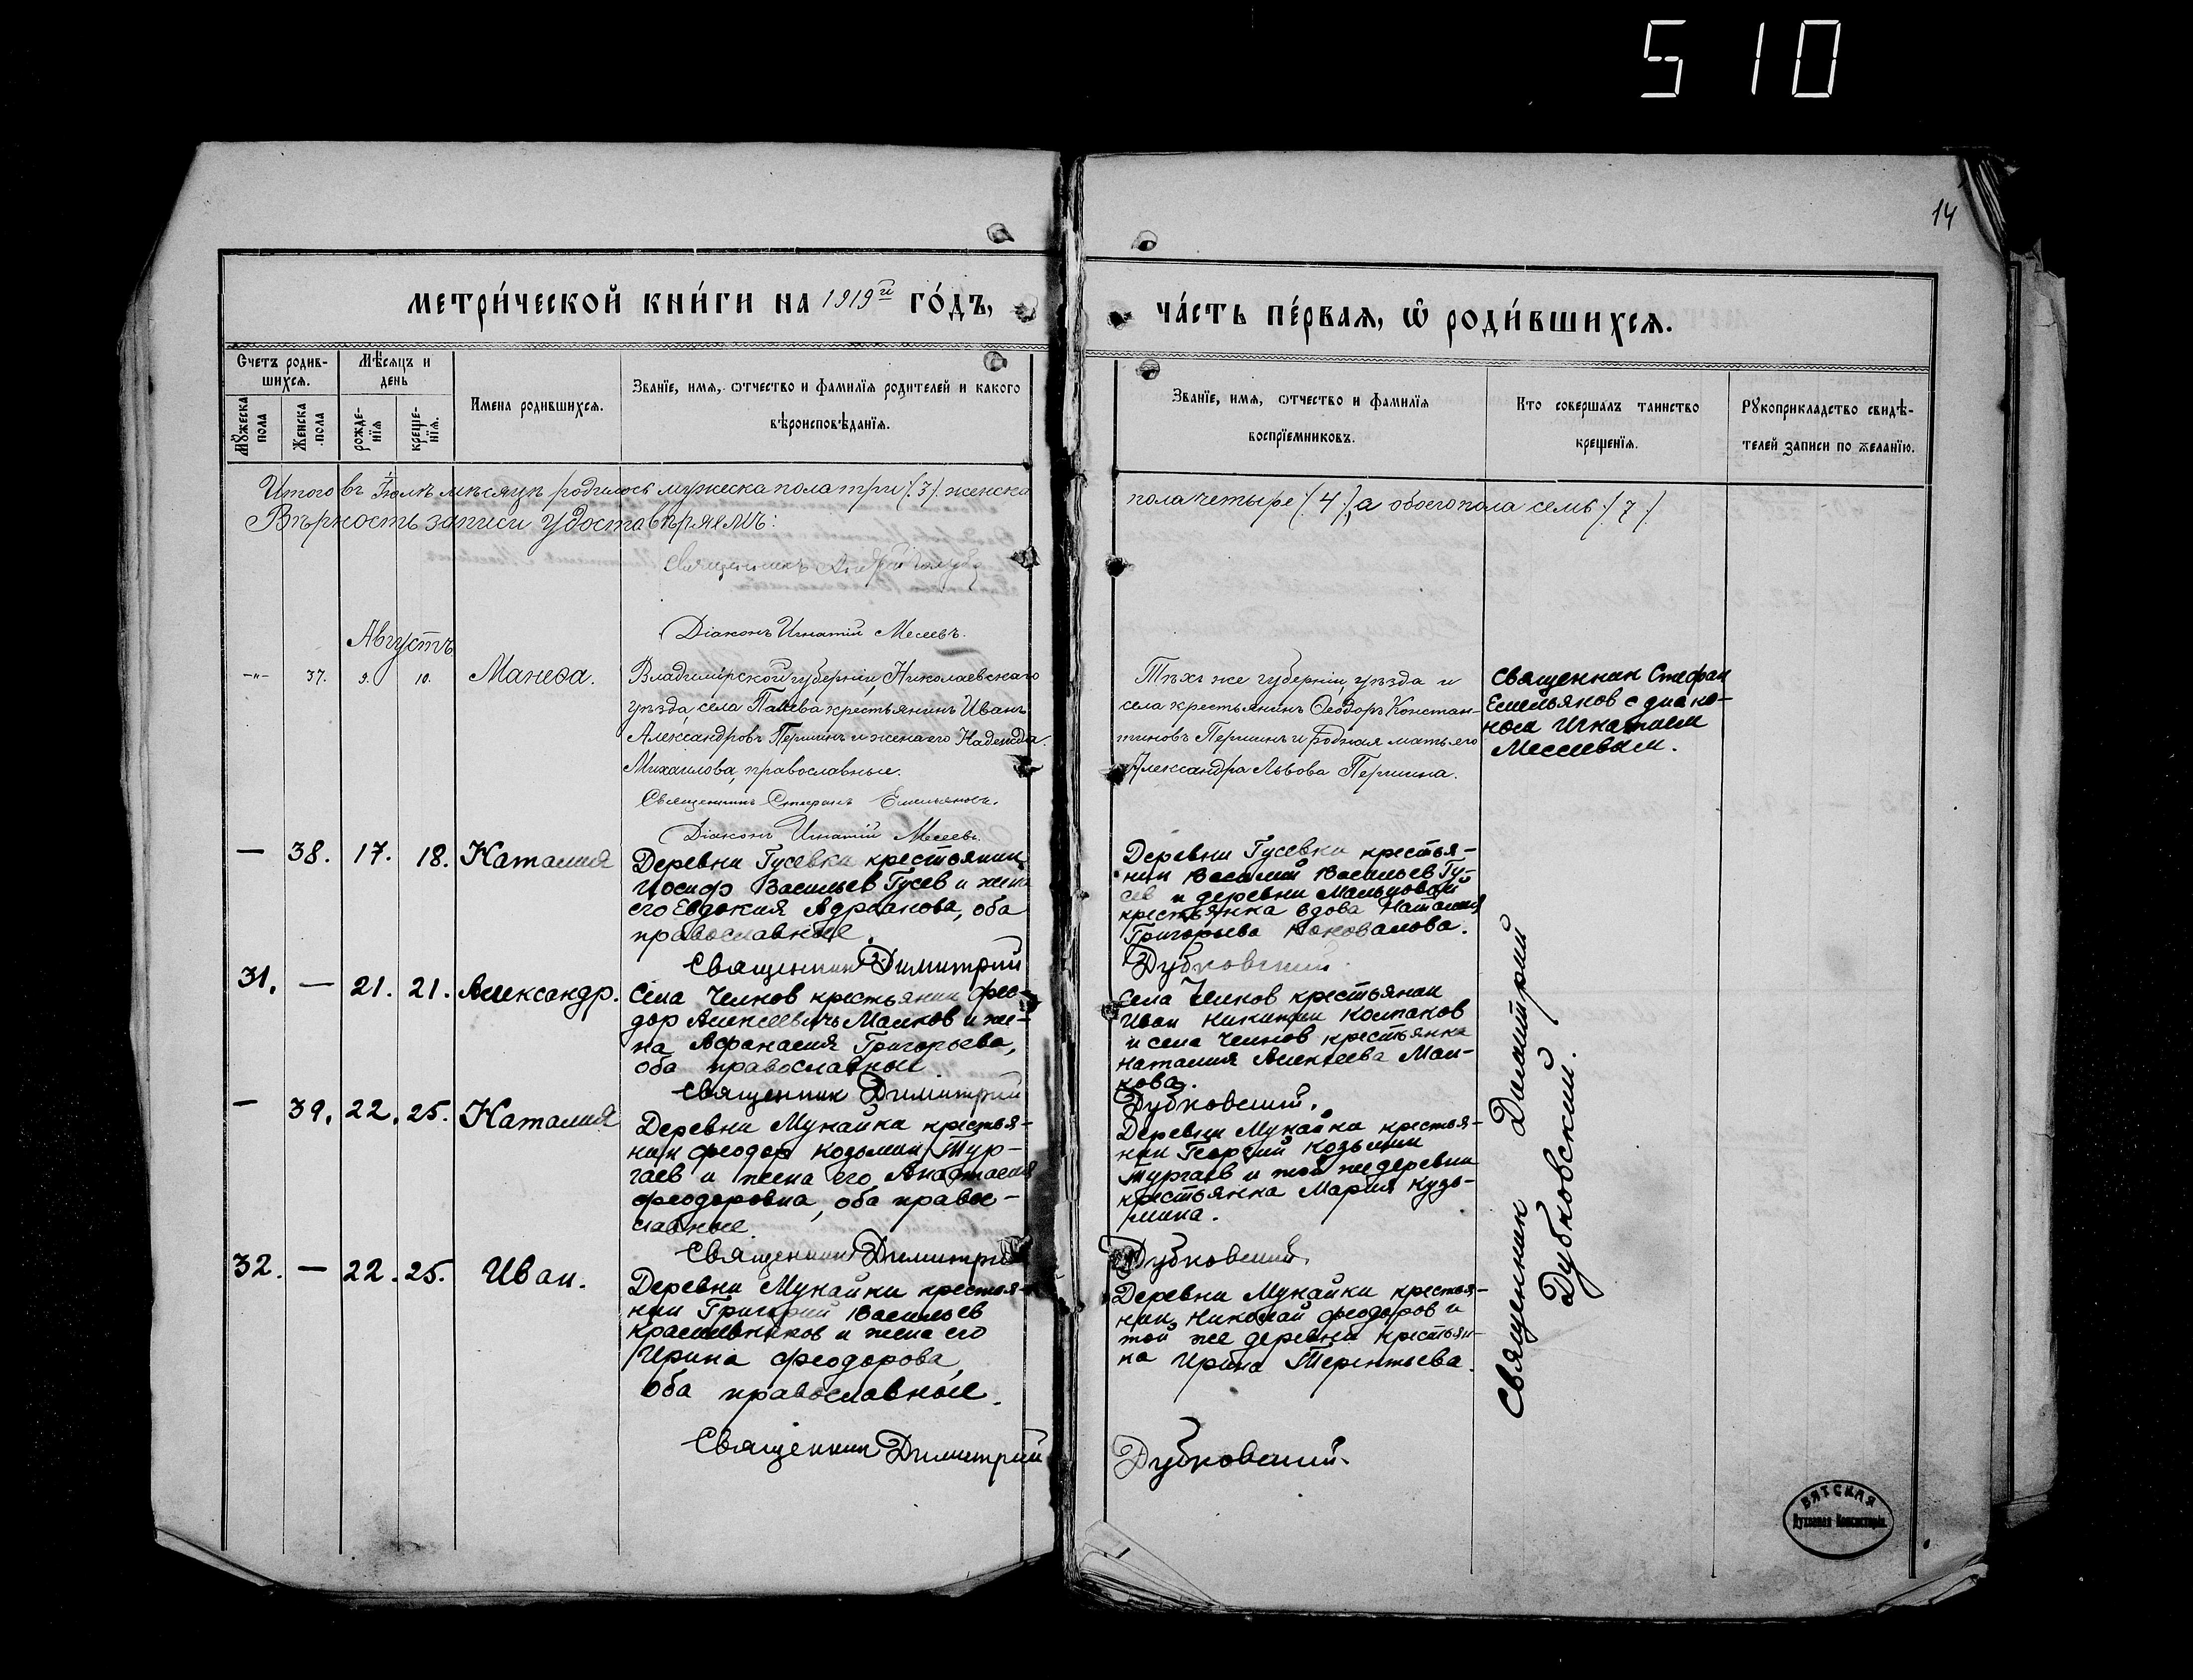 510
14
МЕТРИ́ЧЕСКОЙ КНИ́ГИ НА 1919й ГО́ДЪ,
ЧА́СТЬ ПЕ́РВАЯ, Ѿ РОДИ́ВШИХСЯ.
Счетъ родив-
шихся.
Мѣсяцъ и
день
Мужеска
пола
Женска
пола
рожде-
нія
креще-
нія.
Имена родившихся.
Званіе, имя, отчество и фамилія родителей и какого
вѣроисповѣданія.
Званіе, имя, отчество и фамилія
воспріемниковъ.
Кто совершалъ таинство
крещенія.
Рукоприкладство свидѣ-
телей записи по желанію.
Итого въ Іюлѣ мѣсяцѣ родилось мужеска пола три (3) женска
пола четыре (4), а обоего пола семь (7)
Вѣрность записи удостовѣряемъ:
Священникъ
Діаконъ Игнатій Месеевъ.
Августъ
-"- 37. 9. 10. Манеѳа.
Владимірской губерніи, Николаевскаго
уѣзда, села Палева крестьянинъ Иванъ
Александровъ Першинъ и жена его Надежда
Михаилова, православные.
Священникъ Стефанъ Емельяновъ.
Діаконъ Игнатій Месеевъ.
Тѣхъ же губерніи, уѣзда и
села крестьянинъ Ѳеодоръ Констан-
тиновъ Першинъ и родная мать его
Александра Львова Першина.
Священник Стефан
Емельянов с диако-
ном Игнатием
Месеевым.
— 38. 17. 18. Наталия
Деревни Гусевки крестьянин
Иосиф Васильев Гусев и жена
его Евдокия Адрианова, оба
православные.
Священник Димитрий
Деревни Гусевки крестья-
нин Василий Васильев Гу-
сев и деревни Мальцовой
крестьянка вдова Наталия
Григорьева Коновалова.
Дубковский.
31. — 21. 21. Александр.
Села Челнов крестьянин Фео-
дор Алексеевичъ Малков и же-
на Афанасия Григорьева,
оба православные
Священник Димитрий
Села Челнов крестьянин
Иван Никитин Колпаков
и села Челнов крестьянка
Наталия Алексеева Мал-
кова.
Дубковский.
— 39. 22. 25. Наталия
Деревни Мукайка крестья-
нин Феодор Козьмин Тур-
гаев и жена его Анастасия
Феодоровна, оба правос-
лавные.
Священник Димитрий
Деревни Мукайка крестья-
нин Георгий Козьмин
Тургаев и той же деревни
крестьянка Мария Кузь-
мина.
Дубковский.
32. — 22. 25. Иван.
Деревни Мукайки крестья-
нин Григорий Васильев
Красильников и жена его
Ирина Феодорова,
оба православные.
Священник Димитрий
Деревни Мукайки крестья-
нин Николай Феодоров и
той же деревни крестьян-
ка Ирина Терентьева.
Дубковский.
Священник Димитрий
Дубковский.
ВЯТСКАЯ
Духовная Консисторія.